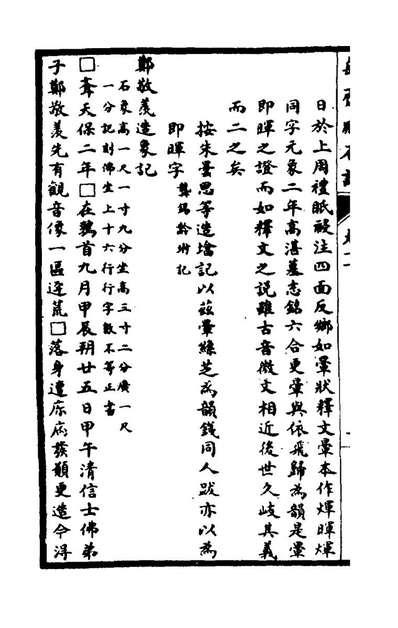 日於上周禮眂祲注四面反鄉如暈狀釋文暈本作煇暉煇
同字元象二年高湛墓志銘六合更暈與依飛歸為韻是暈
即暉之證而如釋文之說雖古音微文相近後世久歧其義
而二之矣
按朱曇思等造塔記以茲暈絲芝為韻錢同人跋亦以為
即暉字 龔錫齡坿記
鄭敬羨造象記
石象高一尺一寸九分坐高三寸二分廣一尺
一分記刻佛坐上十六行行字數不等正書
□齊天保二年□在鶉首九月甲辰朔廿五日甲午清信士佛弟
子鄭敬羨先有觀音像一區迄荒□落身遭疾病發願更造今淂